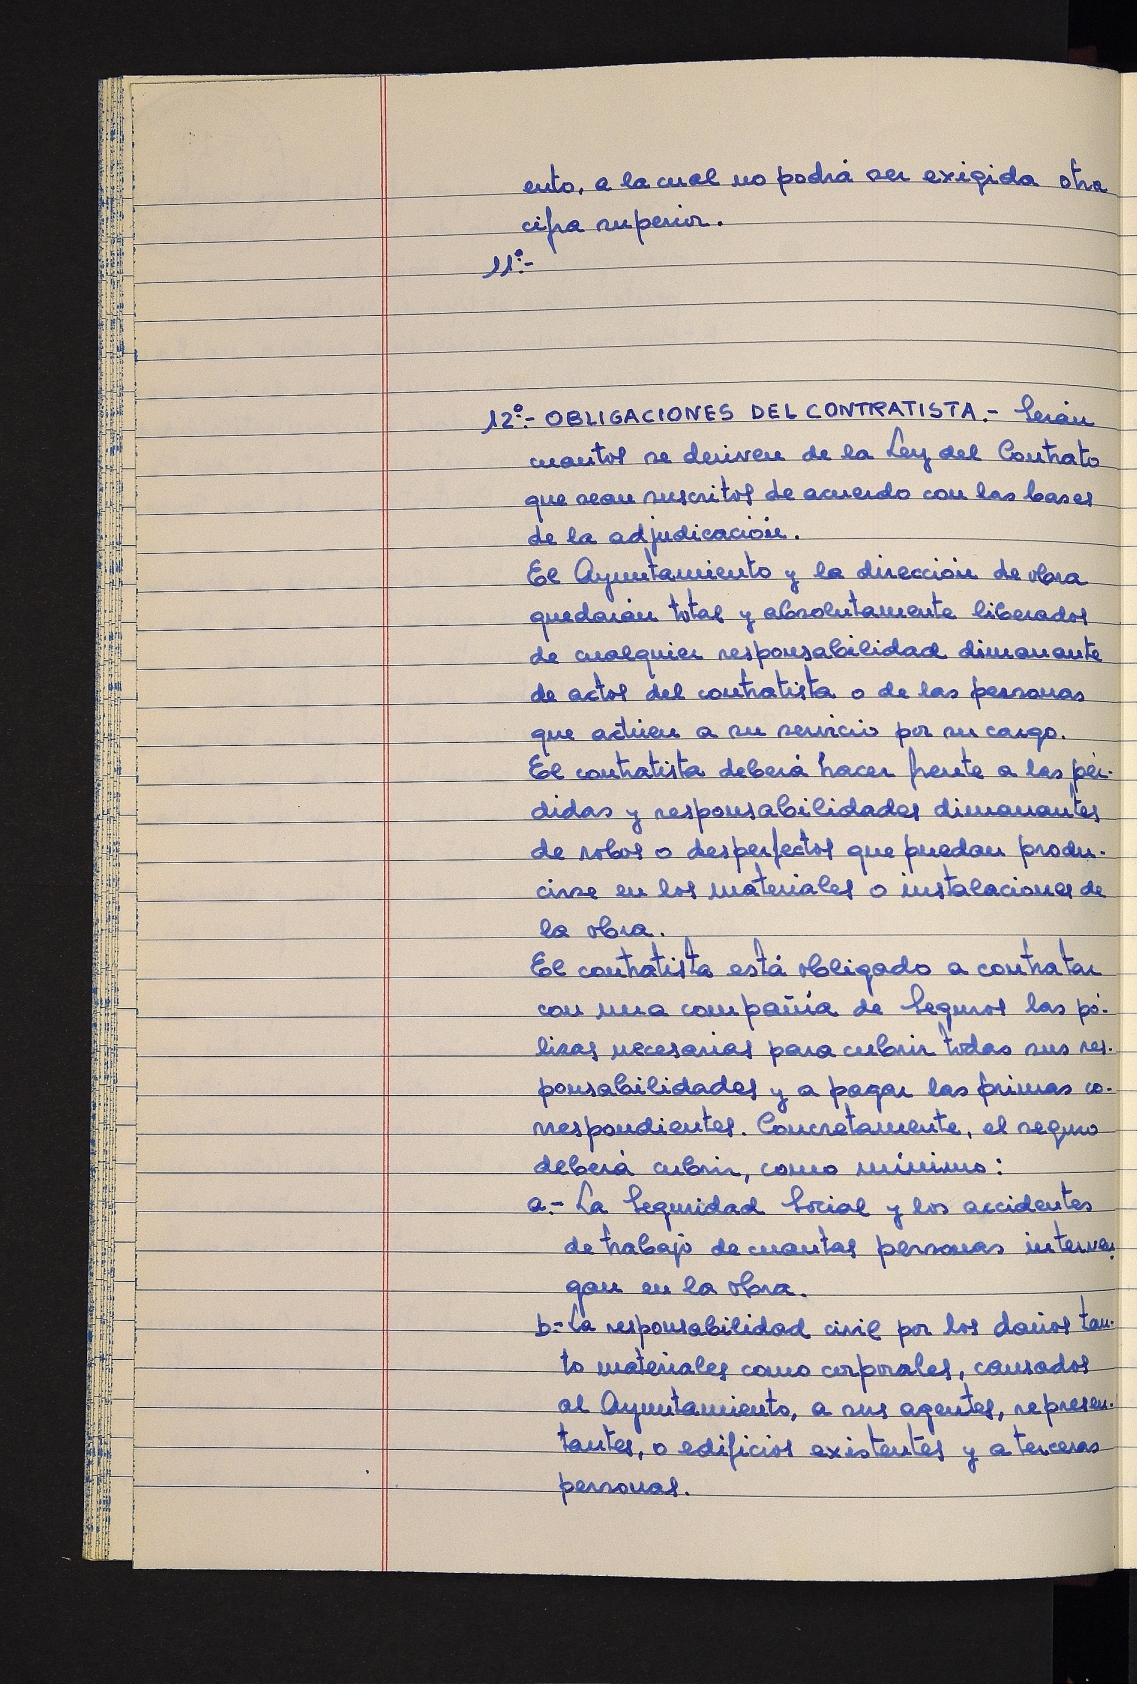 ento, a la cual no podrá ser exigida otra
cifra superior.
11º.-
12º.- OBLIGACIONES DEL CONTRATISTA.- Serán
cuantos se deriven de la Ley del Contrato
que sean suscritos de acuerdo con las bases
de la adjudicación.
El Ayuntamiento y la dirección de obra
quedarán total y absolutamente liberados
de cualquier responsabilidad dimanante
de actos del contratista o de las personas
que actúen a su servicio por su cargo.
El contratista deberá hacer frente a las pér-
didas y responsabilidades dimanantes
de robos o desperfectos que puedan produ-
cirse en los materiales o instalaciones de
la obra.
El contratista está obligado a contratar
con una compañía de Seguros las pó-
lizas necesarias para cubrir todas sus res-
ponsabilidades y a pagar las primas co-
rrespondientes. Concretamente, el seguro
deberá cubrir, como mínimo:
a.- La Seguridad Social y los accidentes
de trabajo de cuantas personas interven
gan en la obra.
b.- La responsabilidad civil por los daños tan-
to materiales como corporales, causados
al Ayuntamiento, a sus agentes, represen-
tantes, o edificios existentes y a terceras
personas.